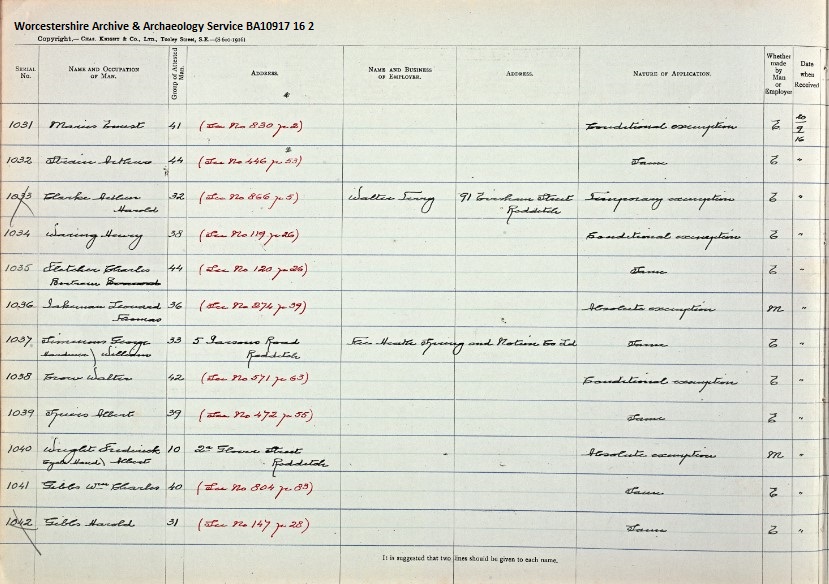 Worcestershire Archive & Archaeology Service BA10917 16 2
Copyright,— Chas. Knight & Co., Ltd., Tooley Street, S.E.
Serial No. Name and Occupation of Man. Group of Attested Man. Address. Name and Business of Employer. Address. Nature of Application. Whether made by Man or Employer Date when Received
1031 Ernest 41 (See No 830 p 2) Conditional exemption E 20/9/16
1032 44 (See No 446 p 53) Same E "
1033 Clarke Harold 32 (See No 866 p 5) Walter Terry 91 Evesham Street Redditch Temporary exemption E "
1034 Waring Henry 38 (See No 119 p 26) Conditional exemption E "
1035 Fletcher Charles Bertram 44 (See No 120 p 26) Same E "
1036 Leonard Thomas 36 (See No 274 p 39) Absolute exemption M "
1037 Simmons George William 33 5 Parsons Road Redditch Heath Spring and Notion Co Ltd Same E "
1038 Walter 42 (See No 571 p 63) Conditional exemption E "
1039 Albert 39 (See No 472 p 55) Same E "
1040 Wright Frederick Albert 10 Glover Street Redditch Absolute exemption M "
1041 Gibbs Wm Charles 40 (See No 804 p 83) Same E "
1042 Gibbs Harold 31 (See No 147 p 28) Same E "
It is suggested that two lines should be given to each name.